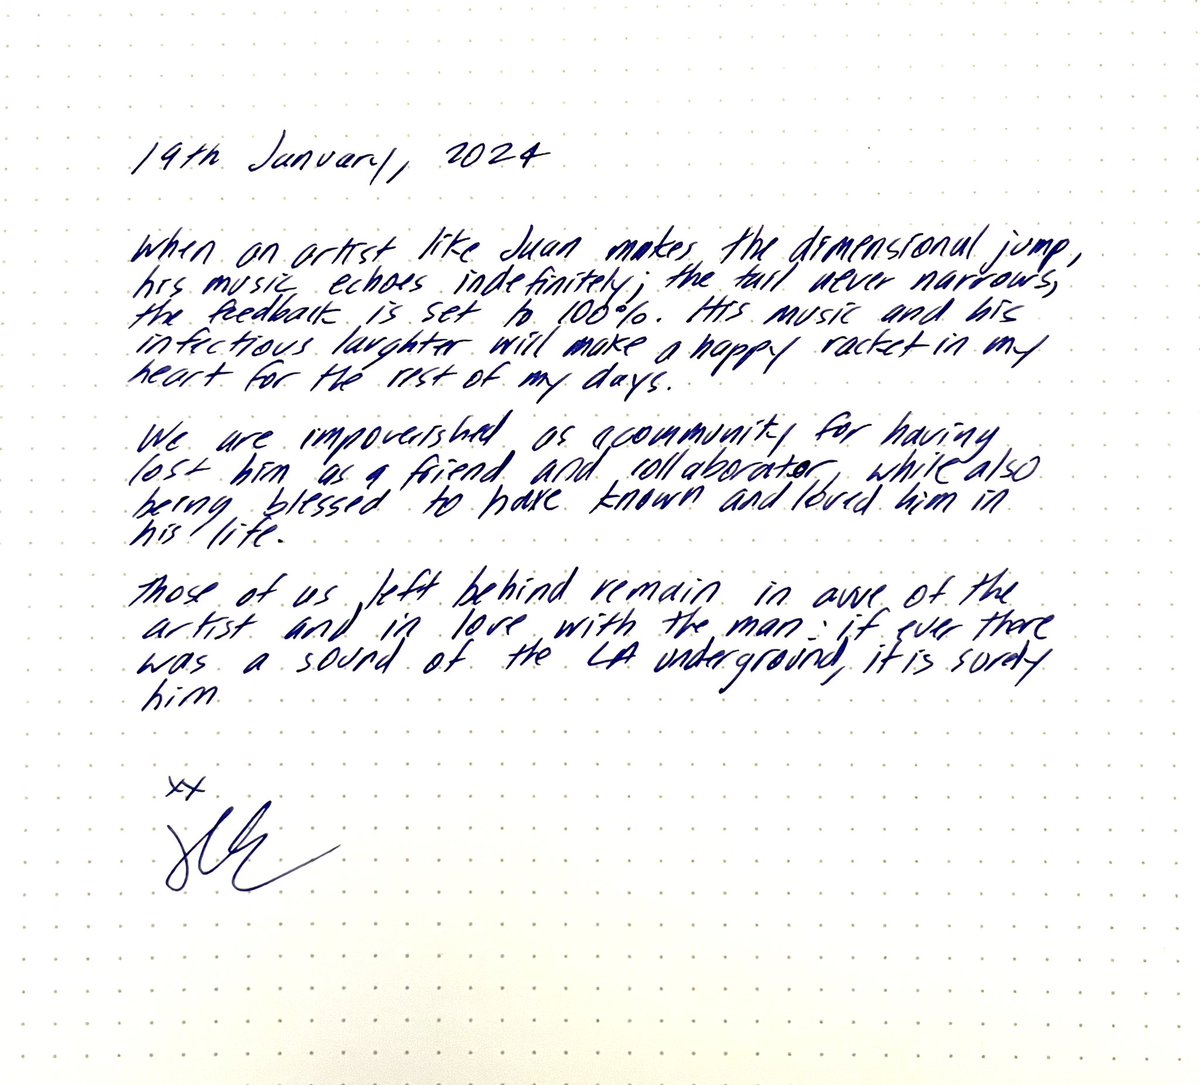 19th January, 2024
When an artist like Juan makes the dimensional jump,
his music echoes indefinitely; the tail never narrows,
the feedback is set to 100%. His music and his
infectious laughter will make a happy racket in my
heart for the rest of my days.
We are impoverished as a community for having
lost him as a friend and collaborator, while also
being blessed to have known and loved him in
his life.
Those of us left behind remain in awe of the
artist and in love with the man: if ever there
was a sound of the LA underground, it is surely
him
xx